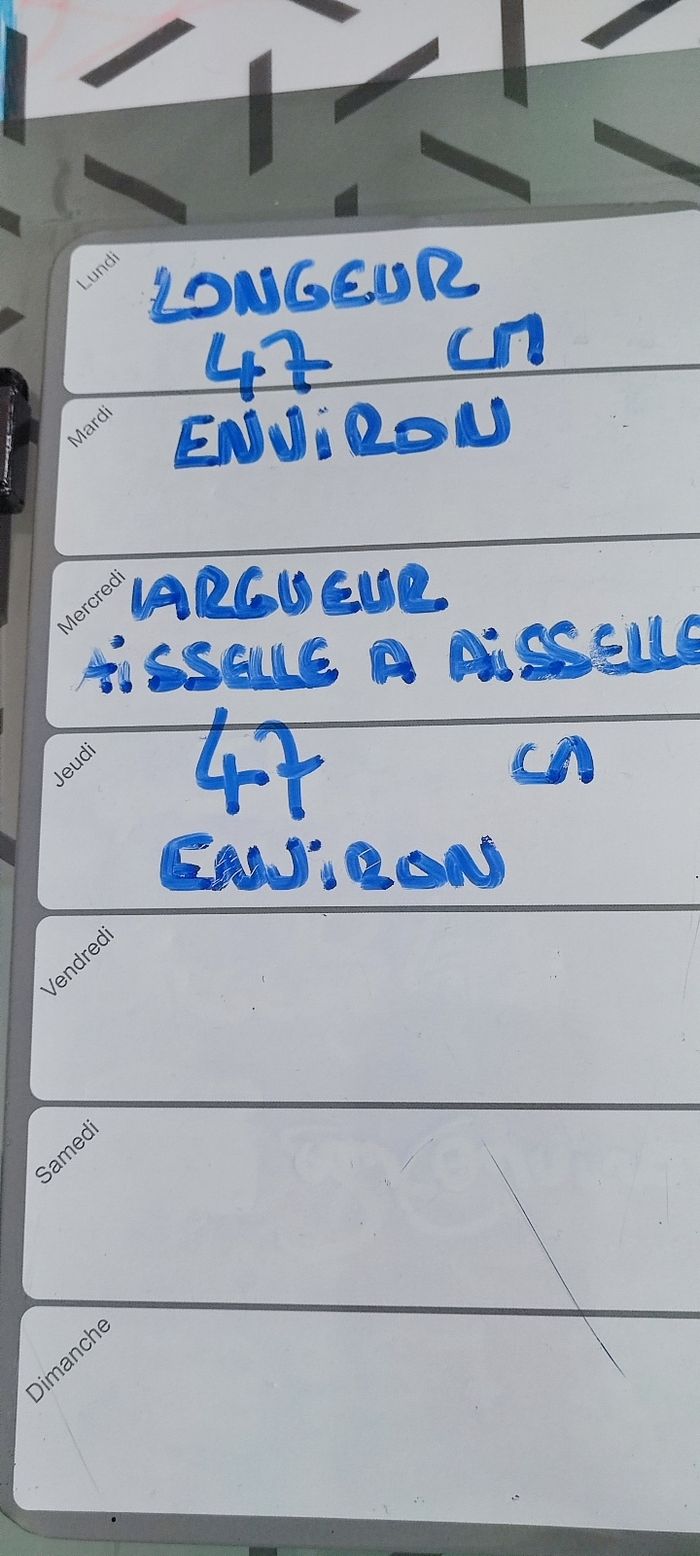 Lundi
LONGEUR
47 cm
Mardi
ENViRON
Mercredi
lARGUEUR
AiSSELLE A AiSSELLE
Jeudi
47 cm
ENViRON
Vendredi
Samedi
Dimanche